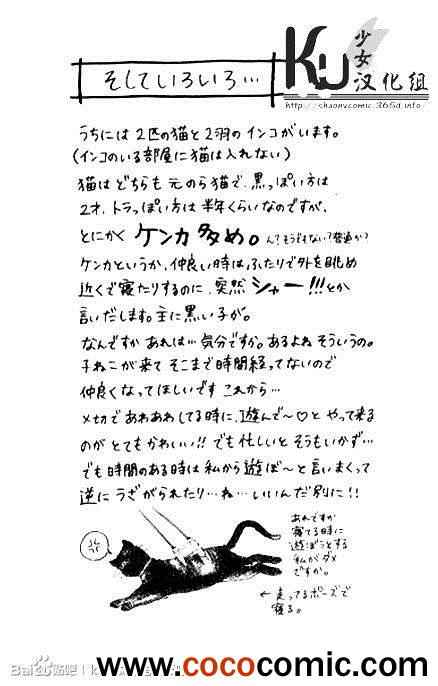 そしていろいろ…
KU
少女
汉化组
http://shaonvcomic.365d.info
うちには2匹の猫と2羽のインコがいます。
(インコのいる部屋に猫は入れない)
猫はどちらも元のら猫で、黒っぽい方は
2才、トラっぽい方は半年くらいなのですが、
とにかくケンカ多め。んてそうでもない?普通か?
ケンカというか、仲良い時はふたりで外を眺め
近くで寝たりするのに、突然シャー!!!とか
言いだします。主に黒い子が。
なんですかあれは…気分ですか。あるよねそういうの。
子ねこが来てそこまで時間経ってないので
仲良くなってほしいですこれから…
〆切であわあわしてる時に、遊んで〜♡とやって来る
のがとてもかわいい!!でも忙しいとそうもいかず…
でも時間のある時は私から遊ぼ〜と言いまくって
逆にうざがられたり…ね…いいんだ別に!!
あれですか
寝てる時に
遊ぼうとする
私がダメ
ですか。
←走ってるポーズで
寝る。
Bai 贴吧
www.cococomic.com